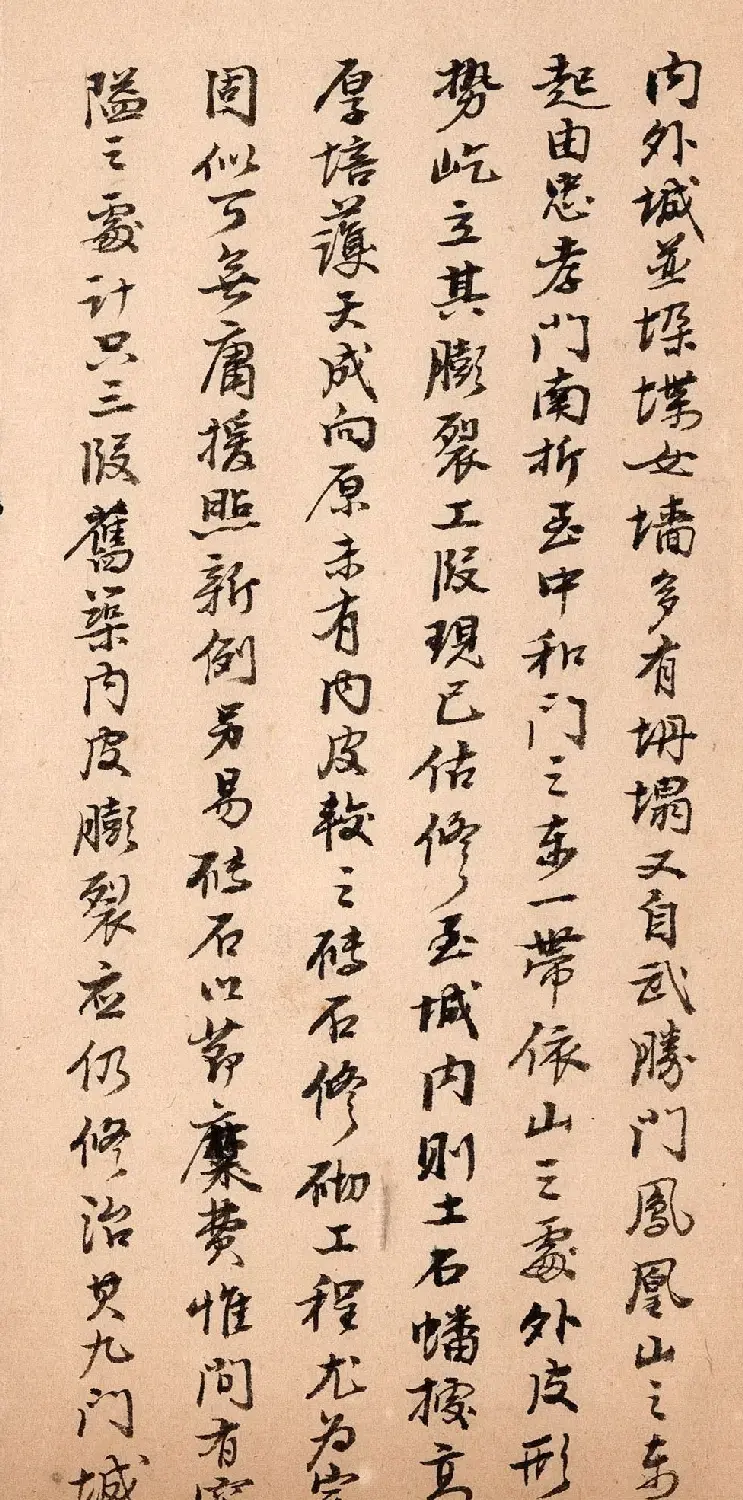 內外城並垜堞女墻多有坍塌又自武勝門鳳凰山之東
起由忠孝門南折至中和門之東一帶依山之處外皮形
勢屹立其膨裂工段現已估修至城內則土石蟠據高
厚培護天成向原未有內皮較之磚石修砌工程尤為
固似可無庸援照新例另易磚石以節糜費惟間有
隘之處計只三段舊築內皮膨裂应仍修治其九門城